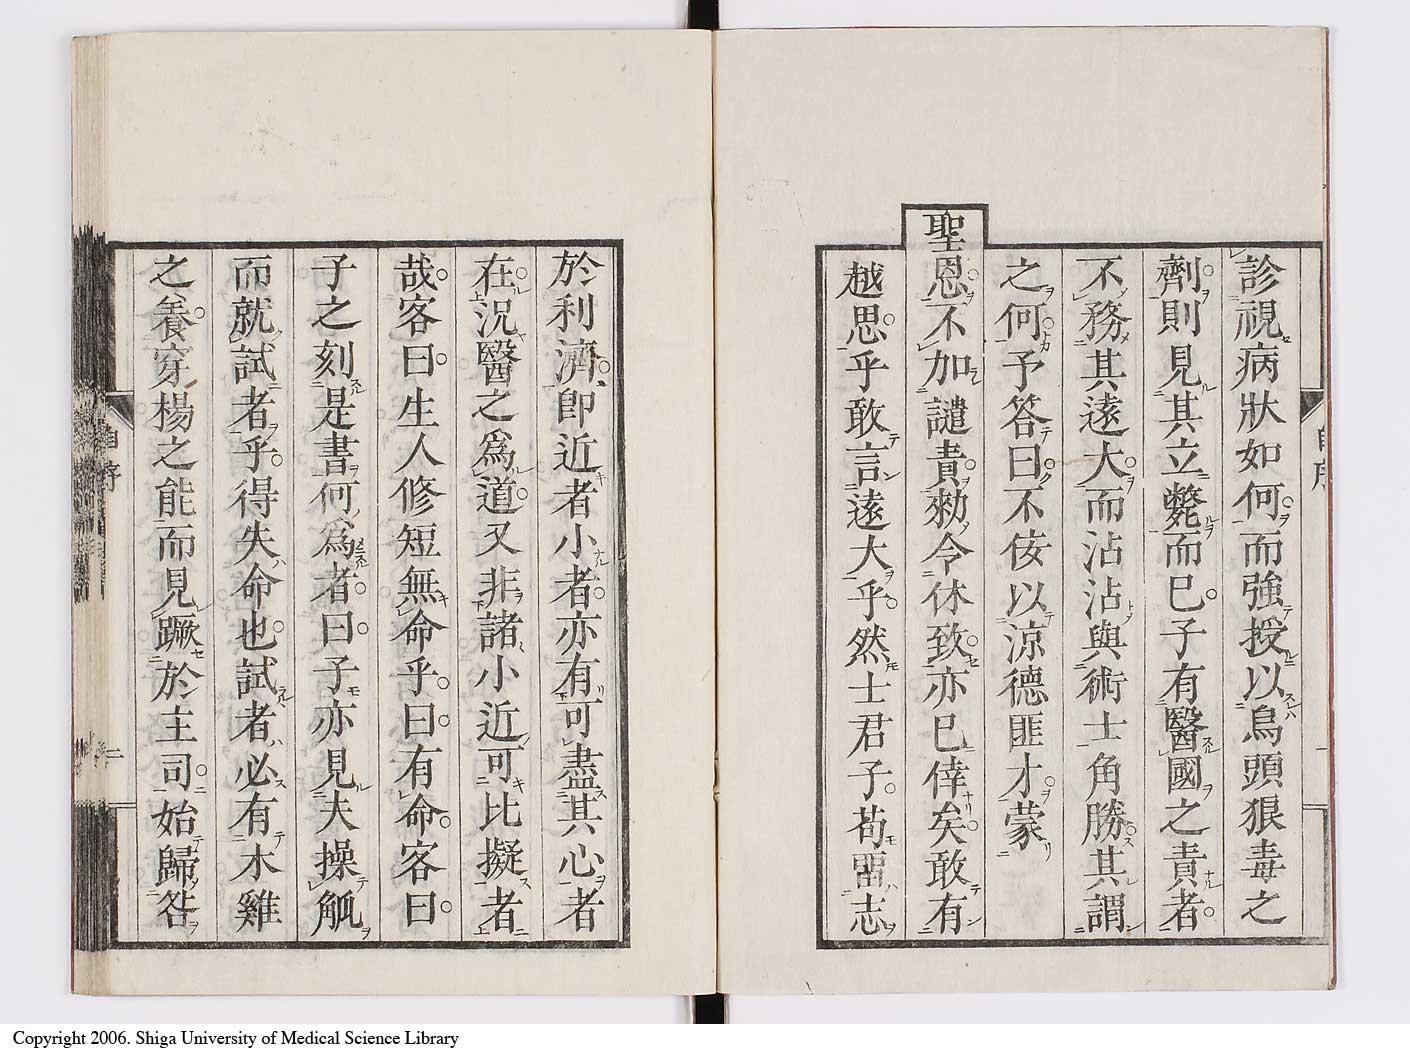 診視病狀如何而強授以烏頭狼毒之
劑則見其立斃而已子有醫國之責者
不務其遠大而沾沾與術士角勝其謂
之何予答曰不侫以涼德匪才蒙
聖恩不加譴責勑令休致亦已倖矣敢有
越思乎敢言遠大乎然士君子苟畱志
自序
於利濟卽近者小者亦有可盡其心者
在況醫之爲道又非諸小近可比擬者
哉客曰生人修短無命乎曰有命客曰
子之刻是書何爲者曰子亦見夫操觚
而就試者乎得失命也試者必有木雞
之養穿楊之能而見蹶於主司始歸咎
自序
二
Copyright 2006. Shiga University of Medical Science Library